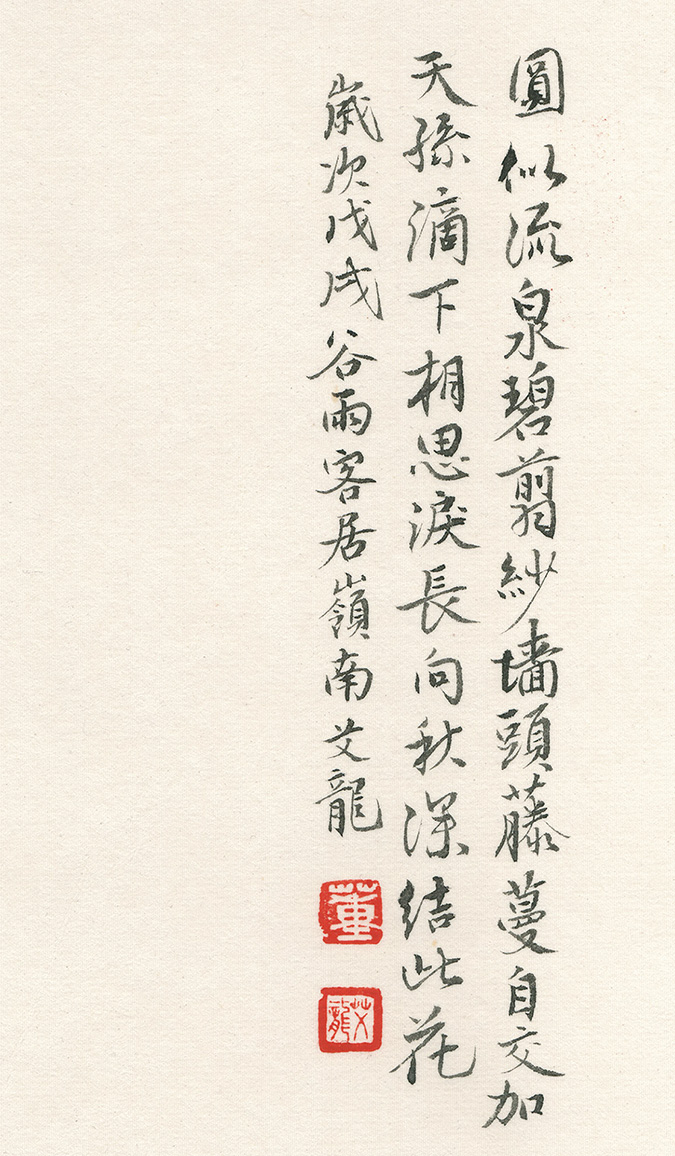 圓似流泉碧翦紗墻頭藤蔓自交加
天孫滴下相思淚長向秋深結此花
歲次戊戌谷雨客居嶺南艾龍
董
艾龍